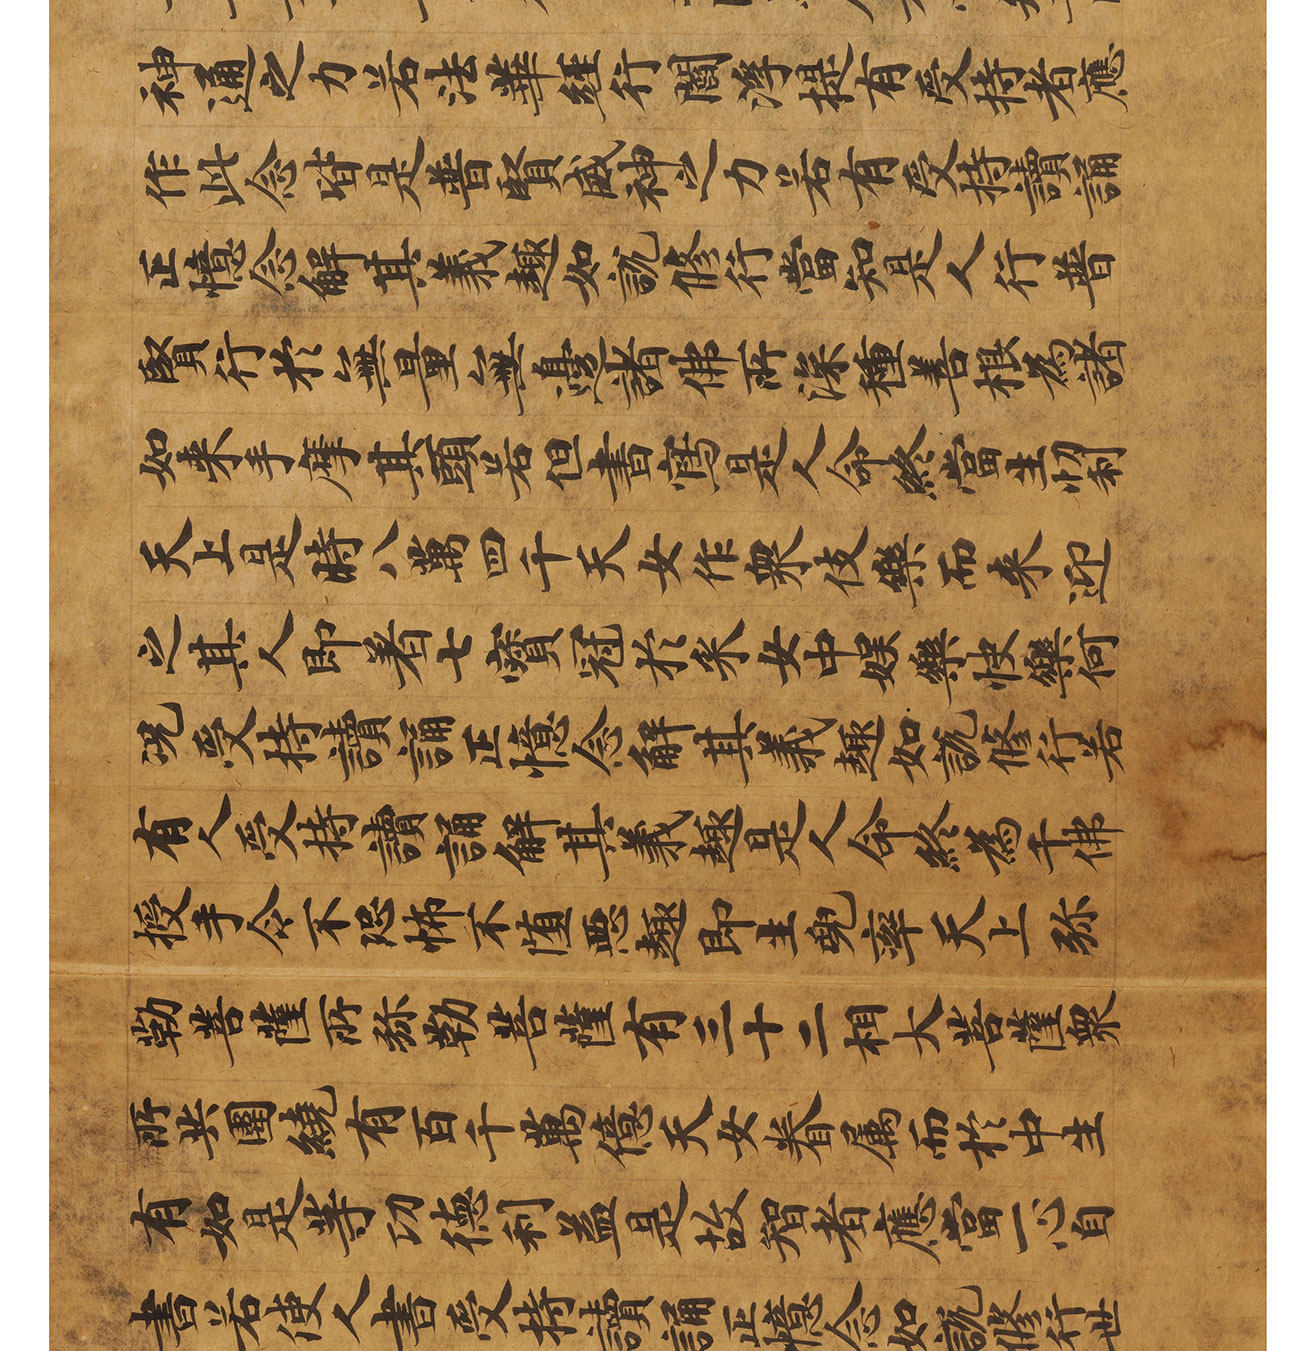 神通之力若法華經行閻浮提有受持者應
作此念皆是普賢威神之力若有受持讀誦
正憶念解其義趣如說修行當知是人行普
賢行於無量無邊諸佛所深種善根為諸
如来手摩其頭若但書寫是人命終當生忉利
天上是時八萬四千天女作衆伎樂而来迎
之其人即著七寶冠於采女中娛樂快樂何
況受持讀誦正憶念解其義趣如說修行若
有人受持讀誦解其義趣是人命終為千佛
授手令不恐怖不墮惡趣即生兜率天上弥
勒菩薩所弥勒菩薩有三十二相大菩薩衆
所共圍繞有百千萬億天女眷属而於中生
有如是等功德利益是故智者應當一心自
書若使人書受持讀誦正憶念如說修行世